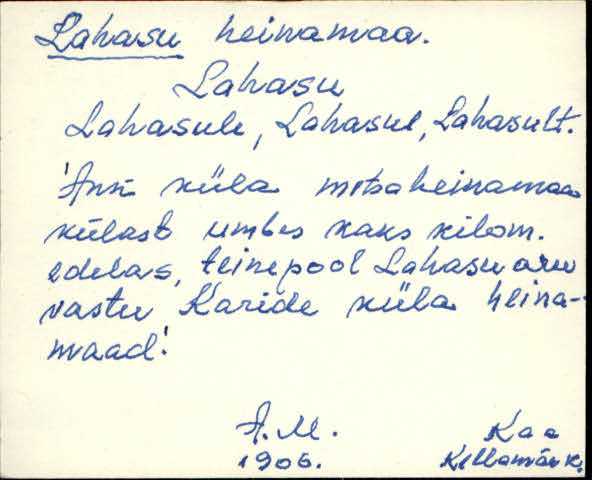 Lahasu heinamaa.
Lahasu
Lahasule, Lahasul, Lahasult.
'Ansi küla metsaheinamaa
külast umbes kaks kilom.
edelas, teinepool Lahasu aru
vastu Karide küla heina-
maad.'
A. M. Kaa
1906. Kellamäe k.